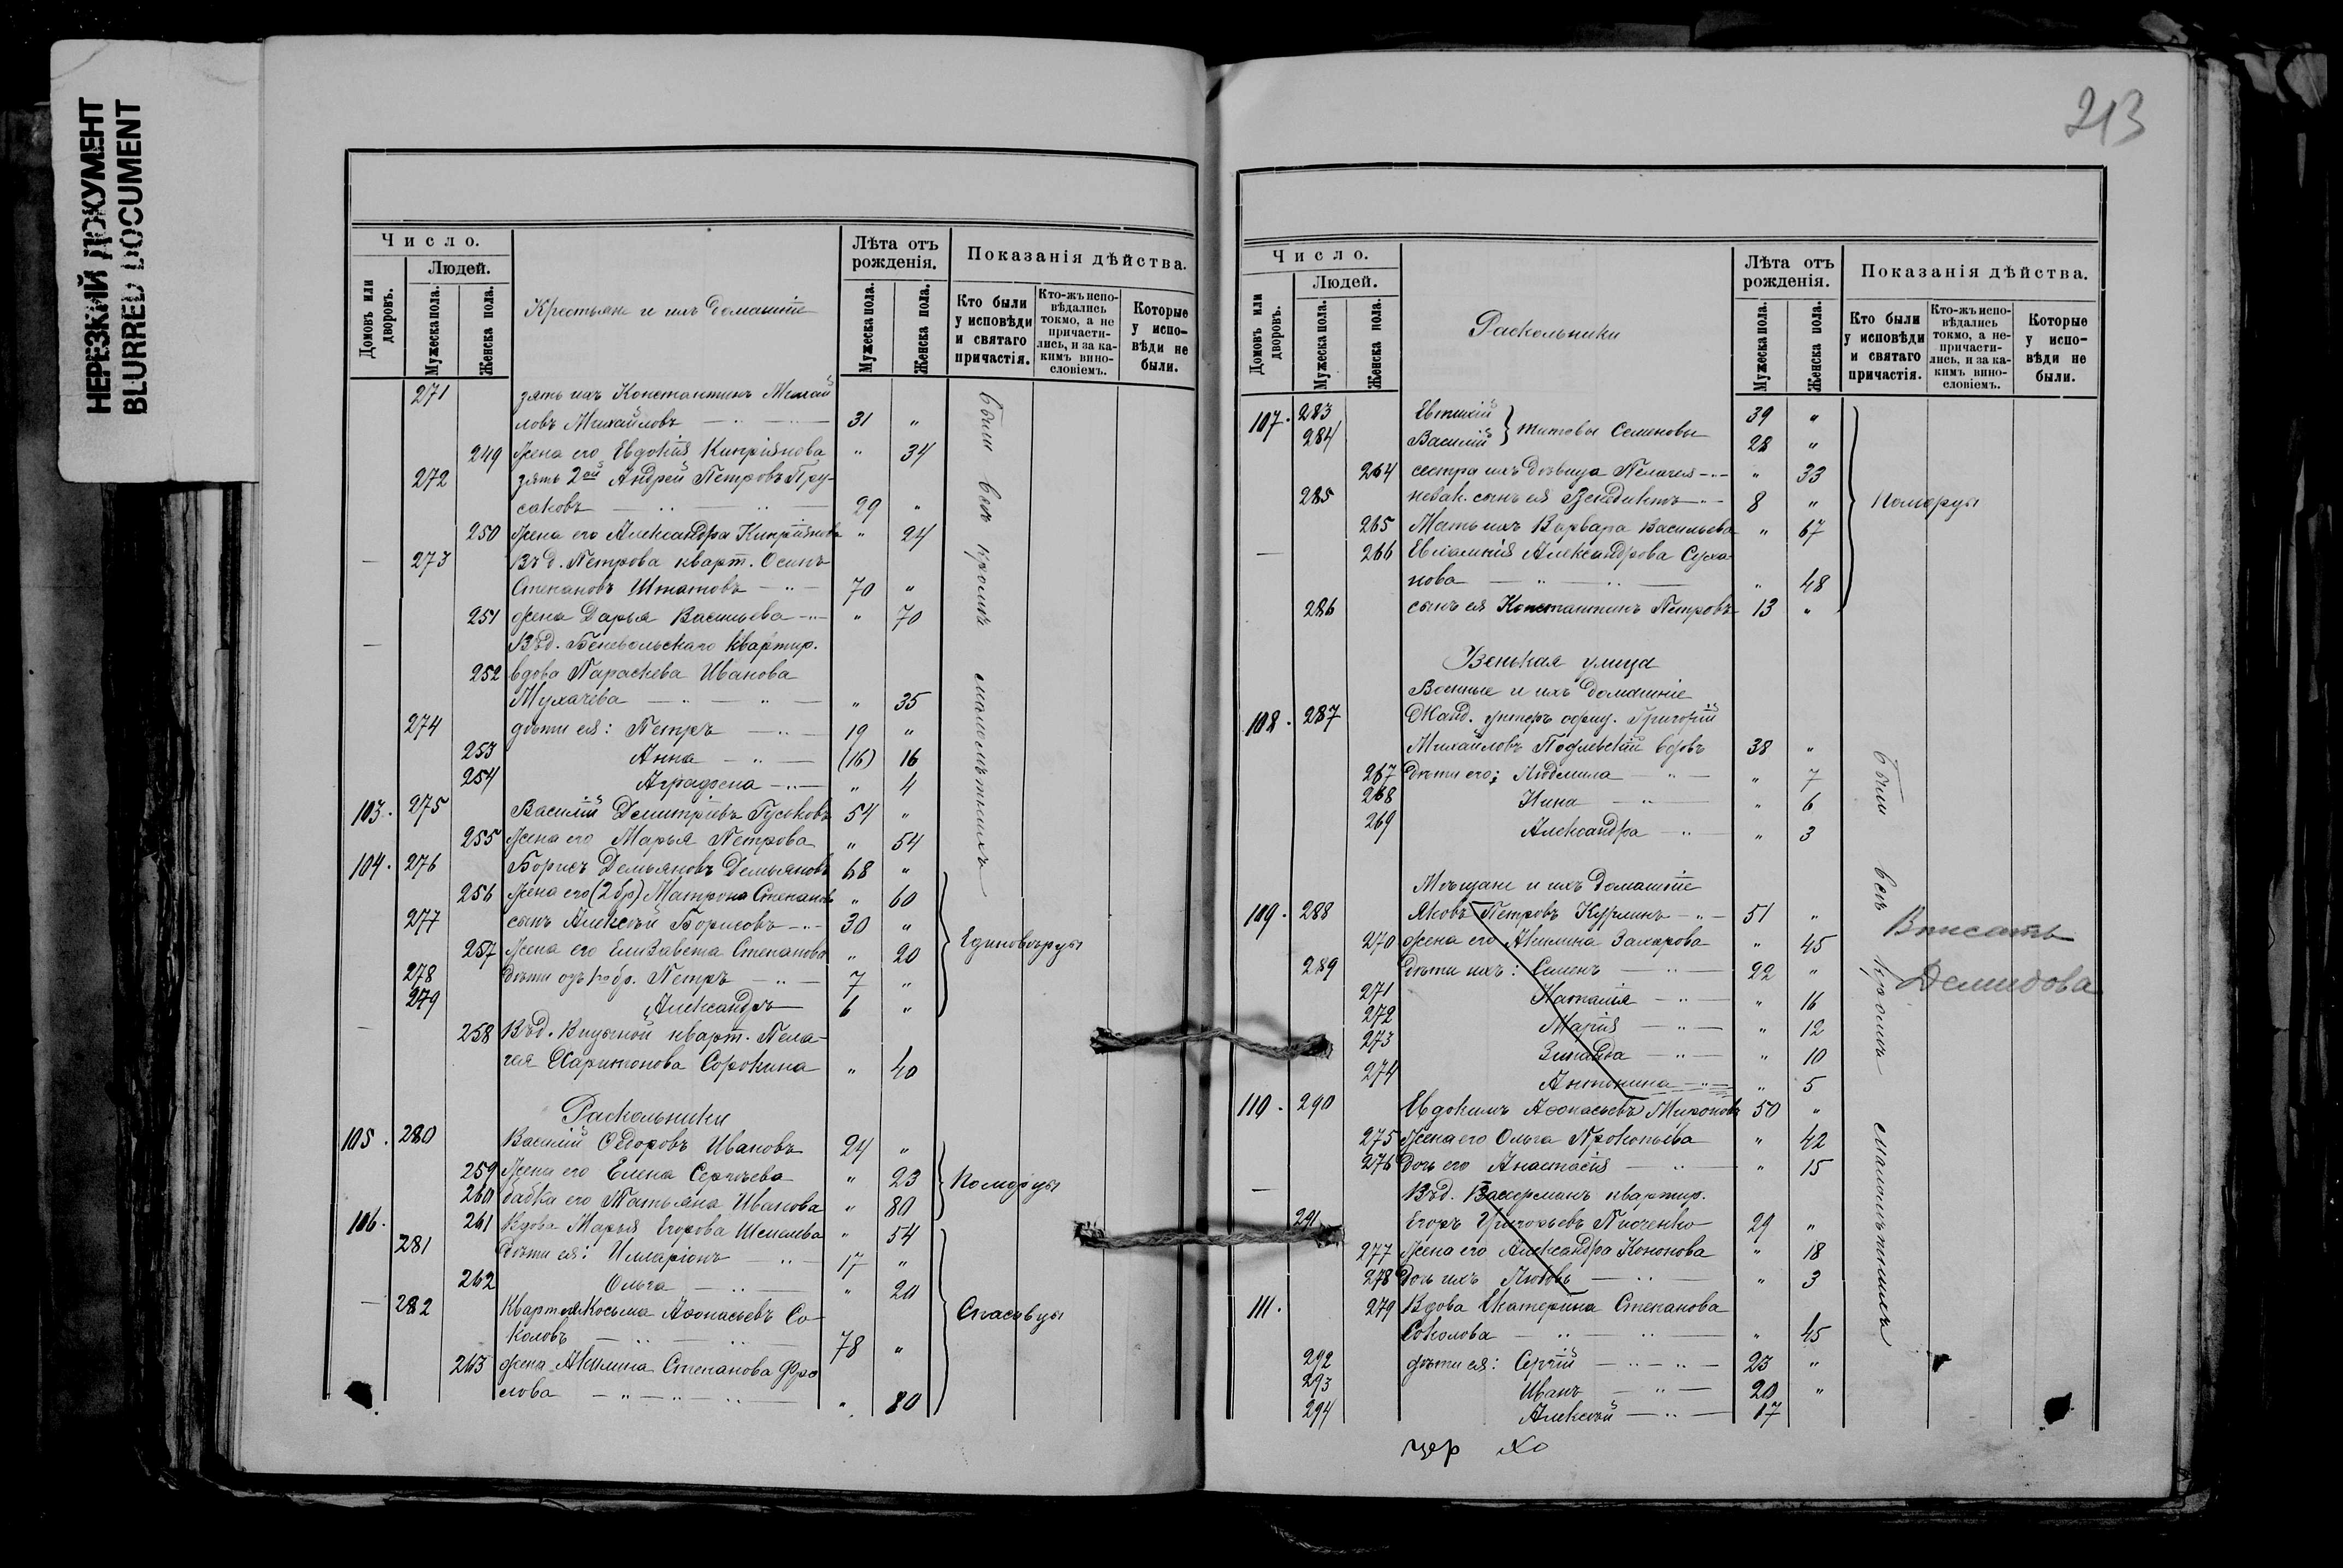 НЕРЕЗКИЙ ДОКУМЕНТ
BLURRED DOCUMENT
Число.
Людей.
Домовъ или дворовъ.
Мужеска пола.
Женска пола.
Крестьяне и ихъ домашніе
Лѣта отъ рожденія.
Мужеска пола.
Женска пола.
Показанія дѣйства.
Кто были у исповѣди и святаго причастія.
Кто-жъ испо-вѣдались токмо, а не причасти-лись, и за ка-кимъ вино-словіемъ.
Которые у испо-вѣди не были.
271 зять ихъ Константинъ Михай
ловъ Михайловъ 31 "
249 жена его Евдокія Кипріянова " 34
272 зять 2ой Андрей Петровъ Пру-
саковъ 29 "
250 жена его Александра Кипріянова " 24
— 273 Въ д. Петрова кварт. Осипъ
Степановъ Шматовъ 70 "
251 жена Дарья Васильева " 70
— Въ д. Беневольскаго квартир.
252 вдова Параскева Иванова
Мухачева " 35
274 дѣти ея: Петръ 19 "
253 Анна (16) 16
254 Аграфена " 4
103. 275 Василій Димитріевъ Гусковъ 54 "
255 жена его Марья Петрова " 54
104. 276 Борисъ Демьяновъ Демьяновъ 68 "
256 жена его (2 бр) Матрона Степанов " 60
277 сынъ Алексѣй Борисовъ 30 "
257 жена его Елизавета Степанова " 20
278 дѣти отъ 1го бр. Петръ 7 "
279 Александръ 6 "
— 258 Въ д. кварт. Пела-
гея Харитонова Сорокина " 40
были всѣ кромѣ малолѣтнихъ
Единовѣрцы
Раскольники
105. 280 Василій Ѳедоровъ Ивановъ 24 "
259 жена его Елена Сергѣева " 23
260 бабка его Татьяна Иванова " 80
Поморцы
106. 261 Вдова Марья Егорова " 54
281 дѣти ея: Илларіонъ 17 "
262 Ольга " 20
— 282 Кварт. Косьма Аѳонасьевъ Со-
коловъ 78 "
263 жена Акилина Степанова Фро
лова " 80
Спасовцы
213
Число.
Людей.
Домовъ или дворовъ.
Мужеска пола.
Женска пола.
Раскольники
Лѣта отъ рожденія.
Мужеска пола.
Женска пола.
Показанія дѣйства.
Кто были у исповѣди и святаго причастія.
Кто-жъ испо-вѣдались токмо, а не-причасти-лись, и за ка-кимъ вино-словіемъ.
Которые у испо-вѣди не были.
107. 283 Евтихій 39 "
284 Василій } Титовы Семеновы 28 "
264 сестра ихъ дѣвица Пелагея " 33
285 незак. сынъ ея Венедиктъ 8 "
265 Мать ихъ Варвара Васильева " 67
— 266 Евлампія Александрова Суха-
нова " 48
286 сынъ ея Константинъ Петровъ 13 "
Поморцы
улица
Военные и ихъ домашніе
108. 287 Жанд. унтеръ офиц. Григорій
Михайловъ вдовъ 38 "
267 дѣти его: Людмила " 7
268 Нина " 6
269 Александра " 3
Мѣщане и ихъ домашніе
109. 288 Яковъ Петровъ Курлинъ 51 "
270 жена его Акилина Захарова " 45
289 дѣти ихъ: Семенъ 22 "
271 Наталія " 16
272 Марія " 12
273 Зинаида " 10
274 Антонина " 5
110. 290 Евдокимъ Аѳонасьевъ Мироновъ 50 "
275 жена его Ольга Прокопьева " 42
276 дочь его Анастасія " 15
— Въ д. Вассерманъ квартир.
291 Егоръ Григорьевъ 29 "
277 жена его Александра Кононова " 18
278 дочь ихъ Любовь " 3
111. 279 Вдова Екатерина Степанова
Соколова " 45
292 дѣти ея: Сергій 23 "
293 Иванъ 20 "
294 Алексѣй 17
были всѣ кромѣ малолѣтнихъ
Вписать
Демидова